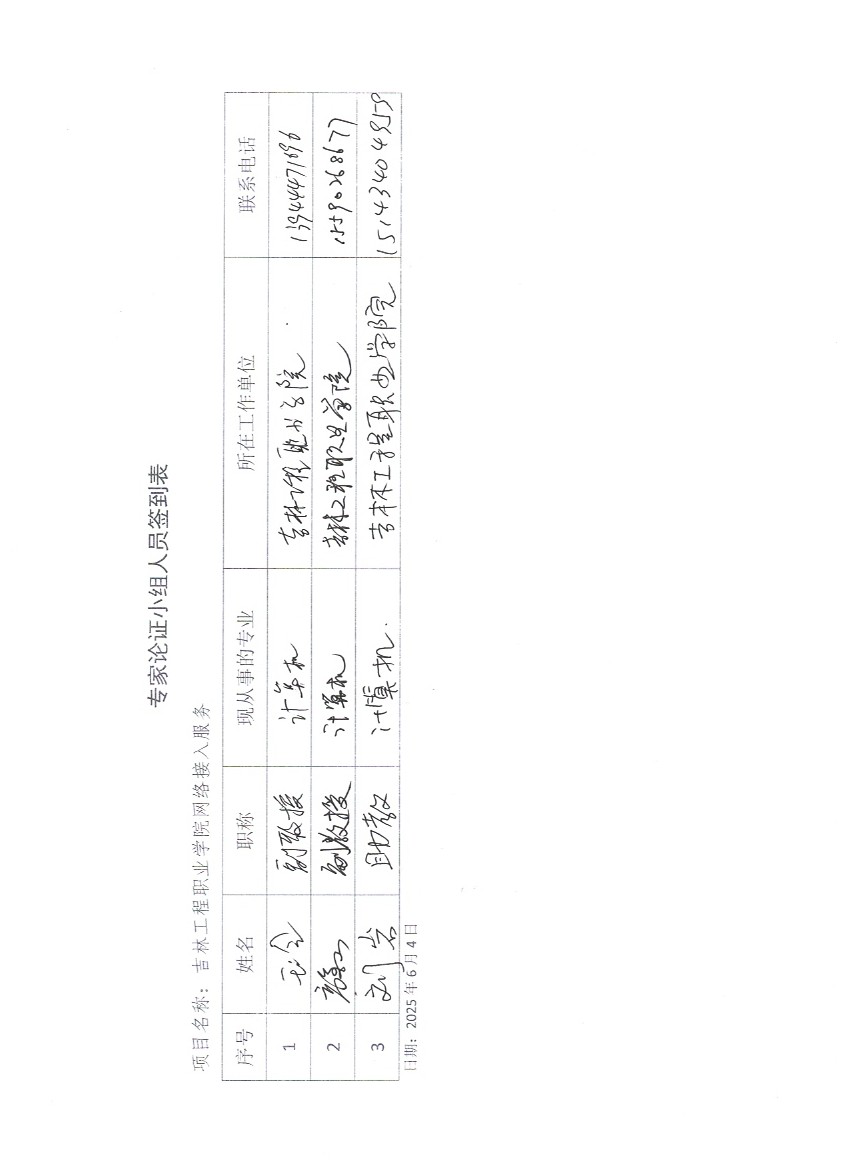 专家论证小组人员签到表
项目名称：吉林工程职业学院网络接入服务
序号 姓名 职称 现从事的专业 所在工作单位 联系电话
1 副教授 计算机 吉林工程职业学院 13944471696
2 副教授 计算机 吉林工程职业学院 15590268677
3 刘岩 助教 计算机 吉林工程职业学院 15143404959
日期：2025年6月4日